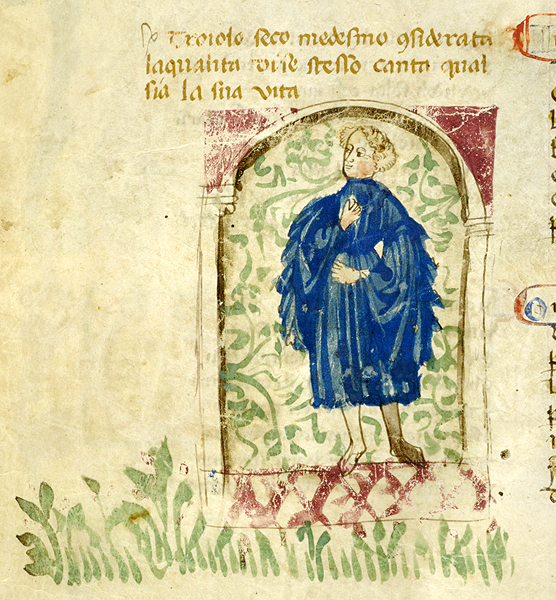 Troiolo seco medesmo ꝯsiderata
laqualita di se stesso canta qual
sia la sua vita